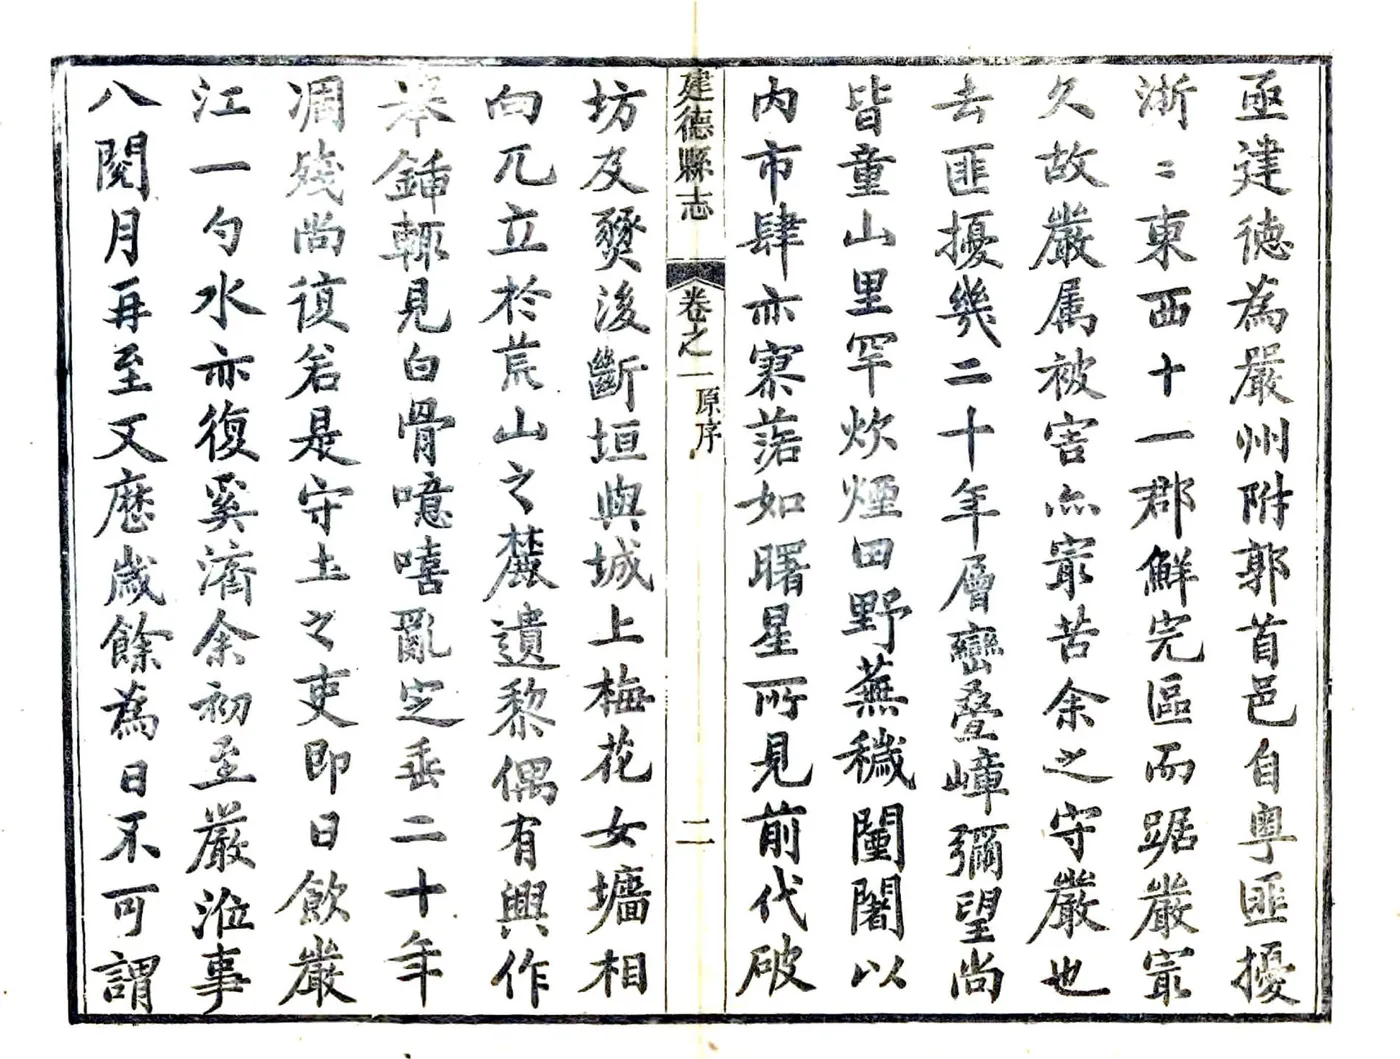 亟建德為嚴州附郭首邑自粤匪擾
浙〻東西十一郡鮮完區而踞嚴㝡
久故嚴属被害亦㝡苦余之守嚴也
去匪擾幾二十年層巒叠嶂彌望尚
皆童山里罕炊煙田野蕪穢闉闍以
内市肆亦寥落如曙星所見前代破
建德縣志
卷之一
原序
二
坊及爕後斷垣與城上梅花女墻相
向兀立於荒山之麓遺黎偶有興作
舉鍤輒見白骨噫嘻亂定垂二十年
凋殘尚復若是守土之吏即日飲嚴
江一勺水亦復奚濟余初至嚴涖事
八閱月再至又歷歲餘為日不可謂